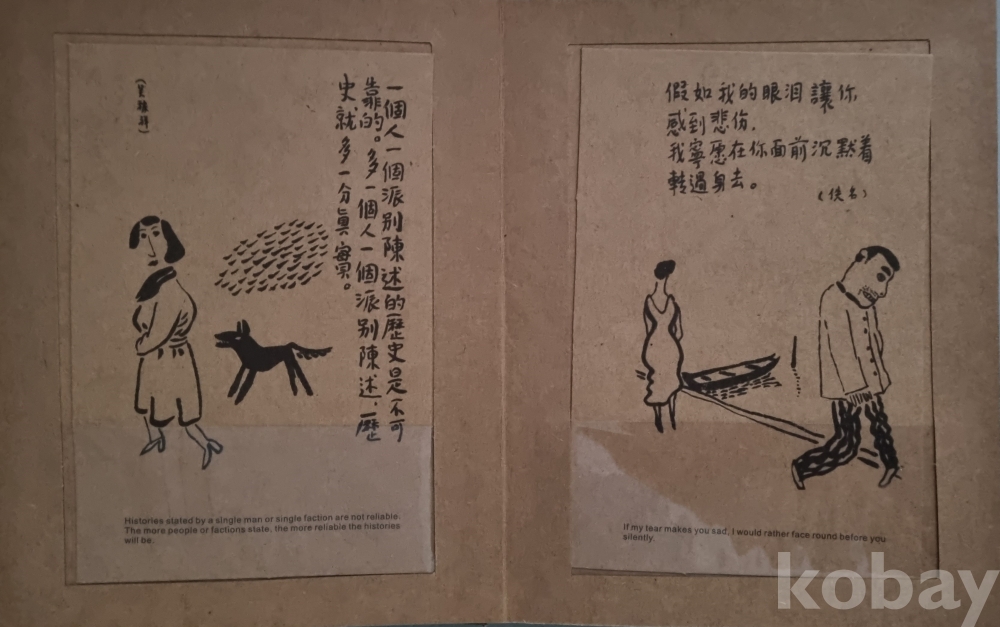 一個人一個派别陳述的歷史是不可
靠的。多一個人一個派别陳述，歷
史就多一分眞實。
Histories stated by a single man or single faction are not reliable.
The more people or factions state, the more reliable the histories
will be.
假如我的眼泪讓你
感到悲伤，
我寧愿在你面前沉默着
轉過身去。
（佚名）
If my tear makes you sad, I would rather face round before you
silently.
kobay